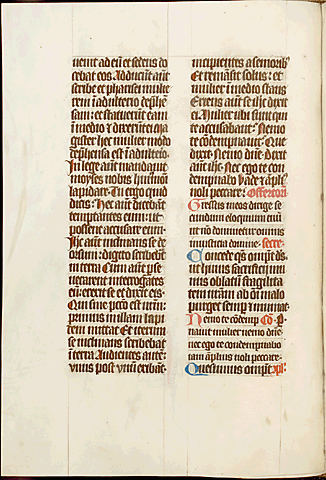 uenit ad eū et sedens do
cebat eos. Adducūt aūt
scribe et pharisei mulie
rem ī adulterio dep̄hē
sam: et statuerūt eam
ī medio et dixerūt ei: ma
gister hec mulier modo
dep̄hensa est ī adulterio.
In lege aūt mandauit
moyses nobis hm̄oi
lapidare. Tu ergo quid
dicis: Hec aūt dicebāt
temptantes eum: ut
possent accusare eum.
Ih̄c aūt inclinans se de
orsum: digito scribebat
in terra. Cum aūt p̄se
uerarent interrogātes
eū: erexit se et dixit eis.
Qui sine pctō est vrm̄:
primus in illam lapi
dem mittat. Et iterum
se inclinans scribebat
ī terra. Audientes aute:
vnus post vnū exibāt
incipientes a seniorib̄
Et remāsit solus: et
mulier ī medio stans
Erigens aūt se ih̄c dixit
ei. Mulier ubi sunt qui
te accusabant: Nemo
te cōdempnauit: Que
dixit. Nemo dn̄e. Dixit
aūt ih̄c. Nec ego te con
dempnabo vade et āpl̄i
noli peccare: Offertoriū
Gressus meos dirige se
cundum eloquium tuū
ut nō dominetur omnis
iniusticia domine. secre.
Concede qs om̄ps ds̄.
ut huius sacrificium
munus oblatū fragilita
tem nr̄am ab oī malo
purget semp et muniat
Nemo te cōdemp Cō. P.
nauit mulier nemo dn̄e
nec ego te condempnabo
iam āplius noli peccare.
Quesumus om̄pt Xpl̄: